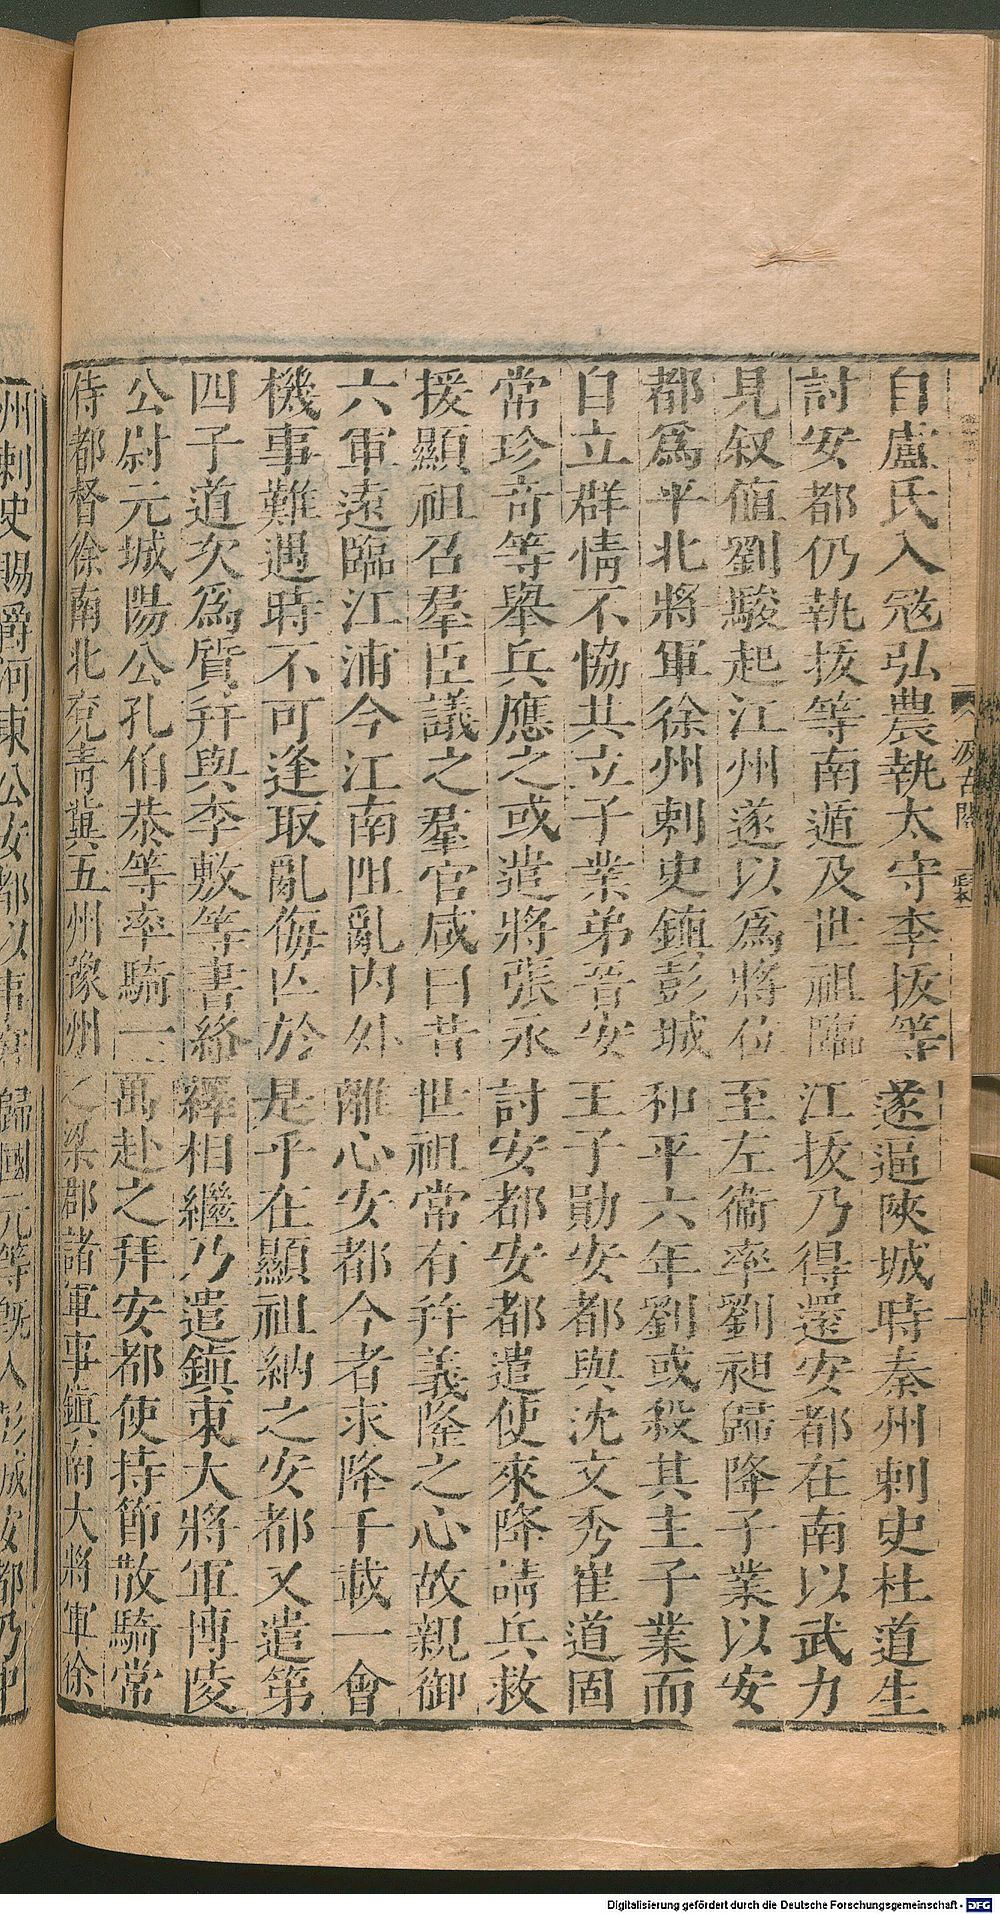 自盧氏入寇弘農執太守李拔等遂逼陝城時秦州刺史杜道生
討安都仍執拔等南遁及世祖臨江拔乃得還安都在南以武力
見叙値劉駿起江州遂以為將位至左衞率劉昶歸降子業以安
都爲平北將軍徐州刺史鎮彭城和平六年劉彧殺其主子業而
自立群情不恊共立子業弟晉安王子勛安都與沈文秀崔道固
常珍奇等舉兵應之彧遣將張永討安都安都遣使來降請兵救
援顯祖召羣臣議之羣官咸曰昔世祖常有幷義隆之心故親御
六軍遠臨江浦今江南阻亂内外離心安都今者求降千載一會
機事難遇時不可逢取亂侮亡於是乎在顯祖納之安都又遣第
四子道次爲質幷與李敷等書絡繹相繼乃遣鎭東大將軍博陵
公尉元城陽公孔伯恭等率騎一萬赴之拜安都使持節散騎常
侍都督徐南北兗青冀五州豫州之梁郡諸軍事鎭南大將軍徐
州刺史賜爵河東公安都以事窘歸國元等旣入彭城安都乃中
汲古閣
Digitalisierung gefördert durch die Deutsche Forschungsgemeinschaft - DFG